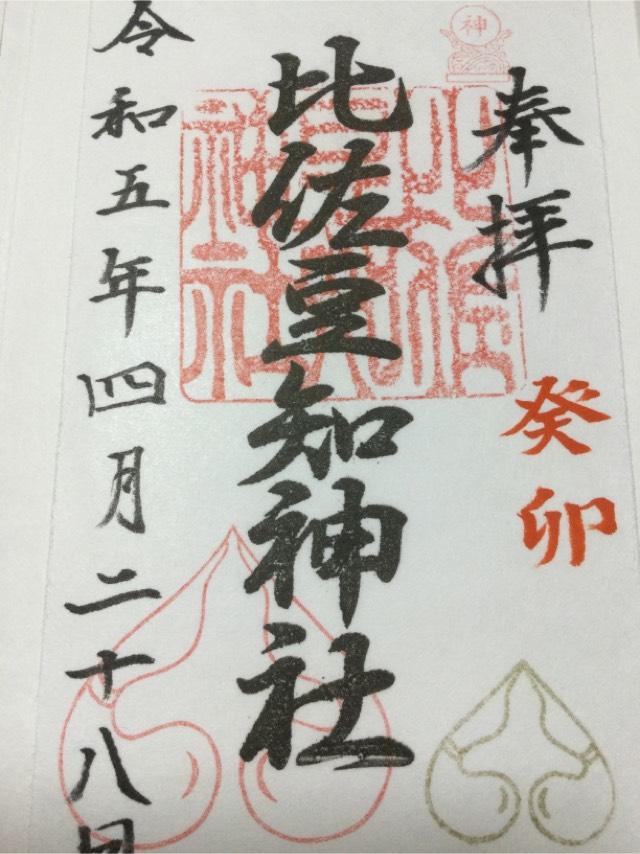 神
奉拝
癸卯
比佐豆知神社
令和五年四月二十八日